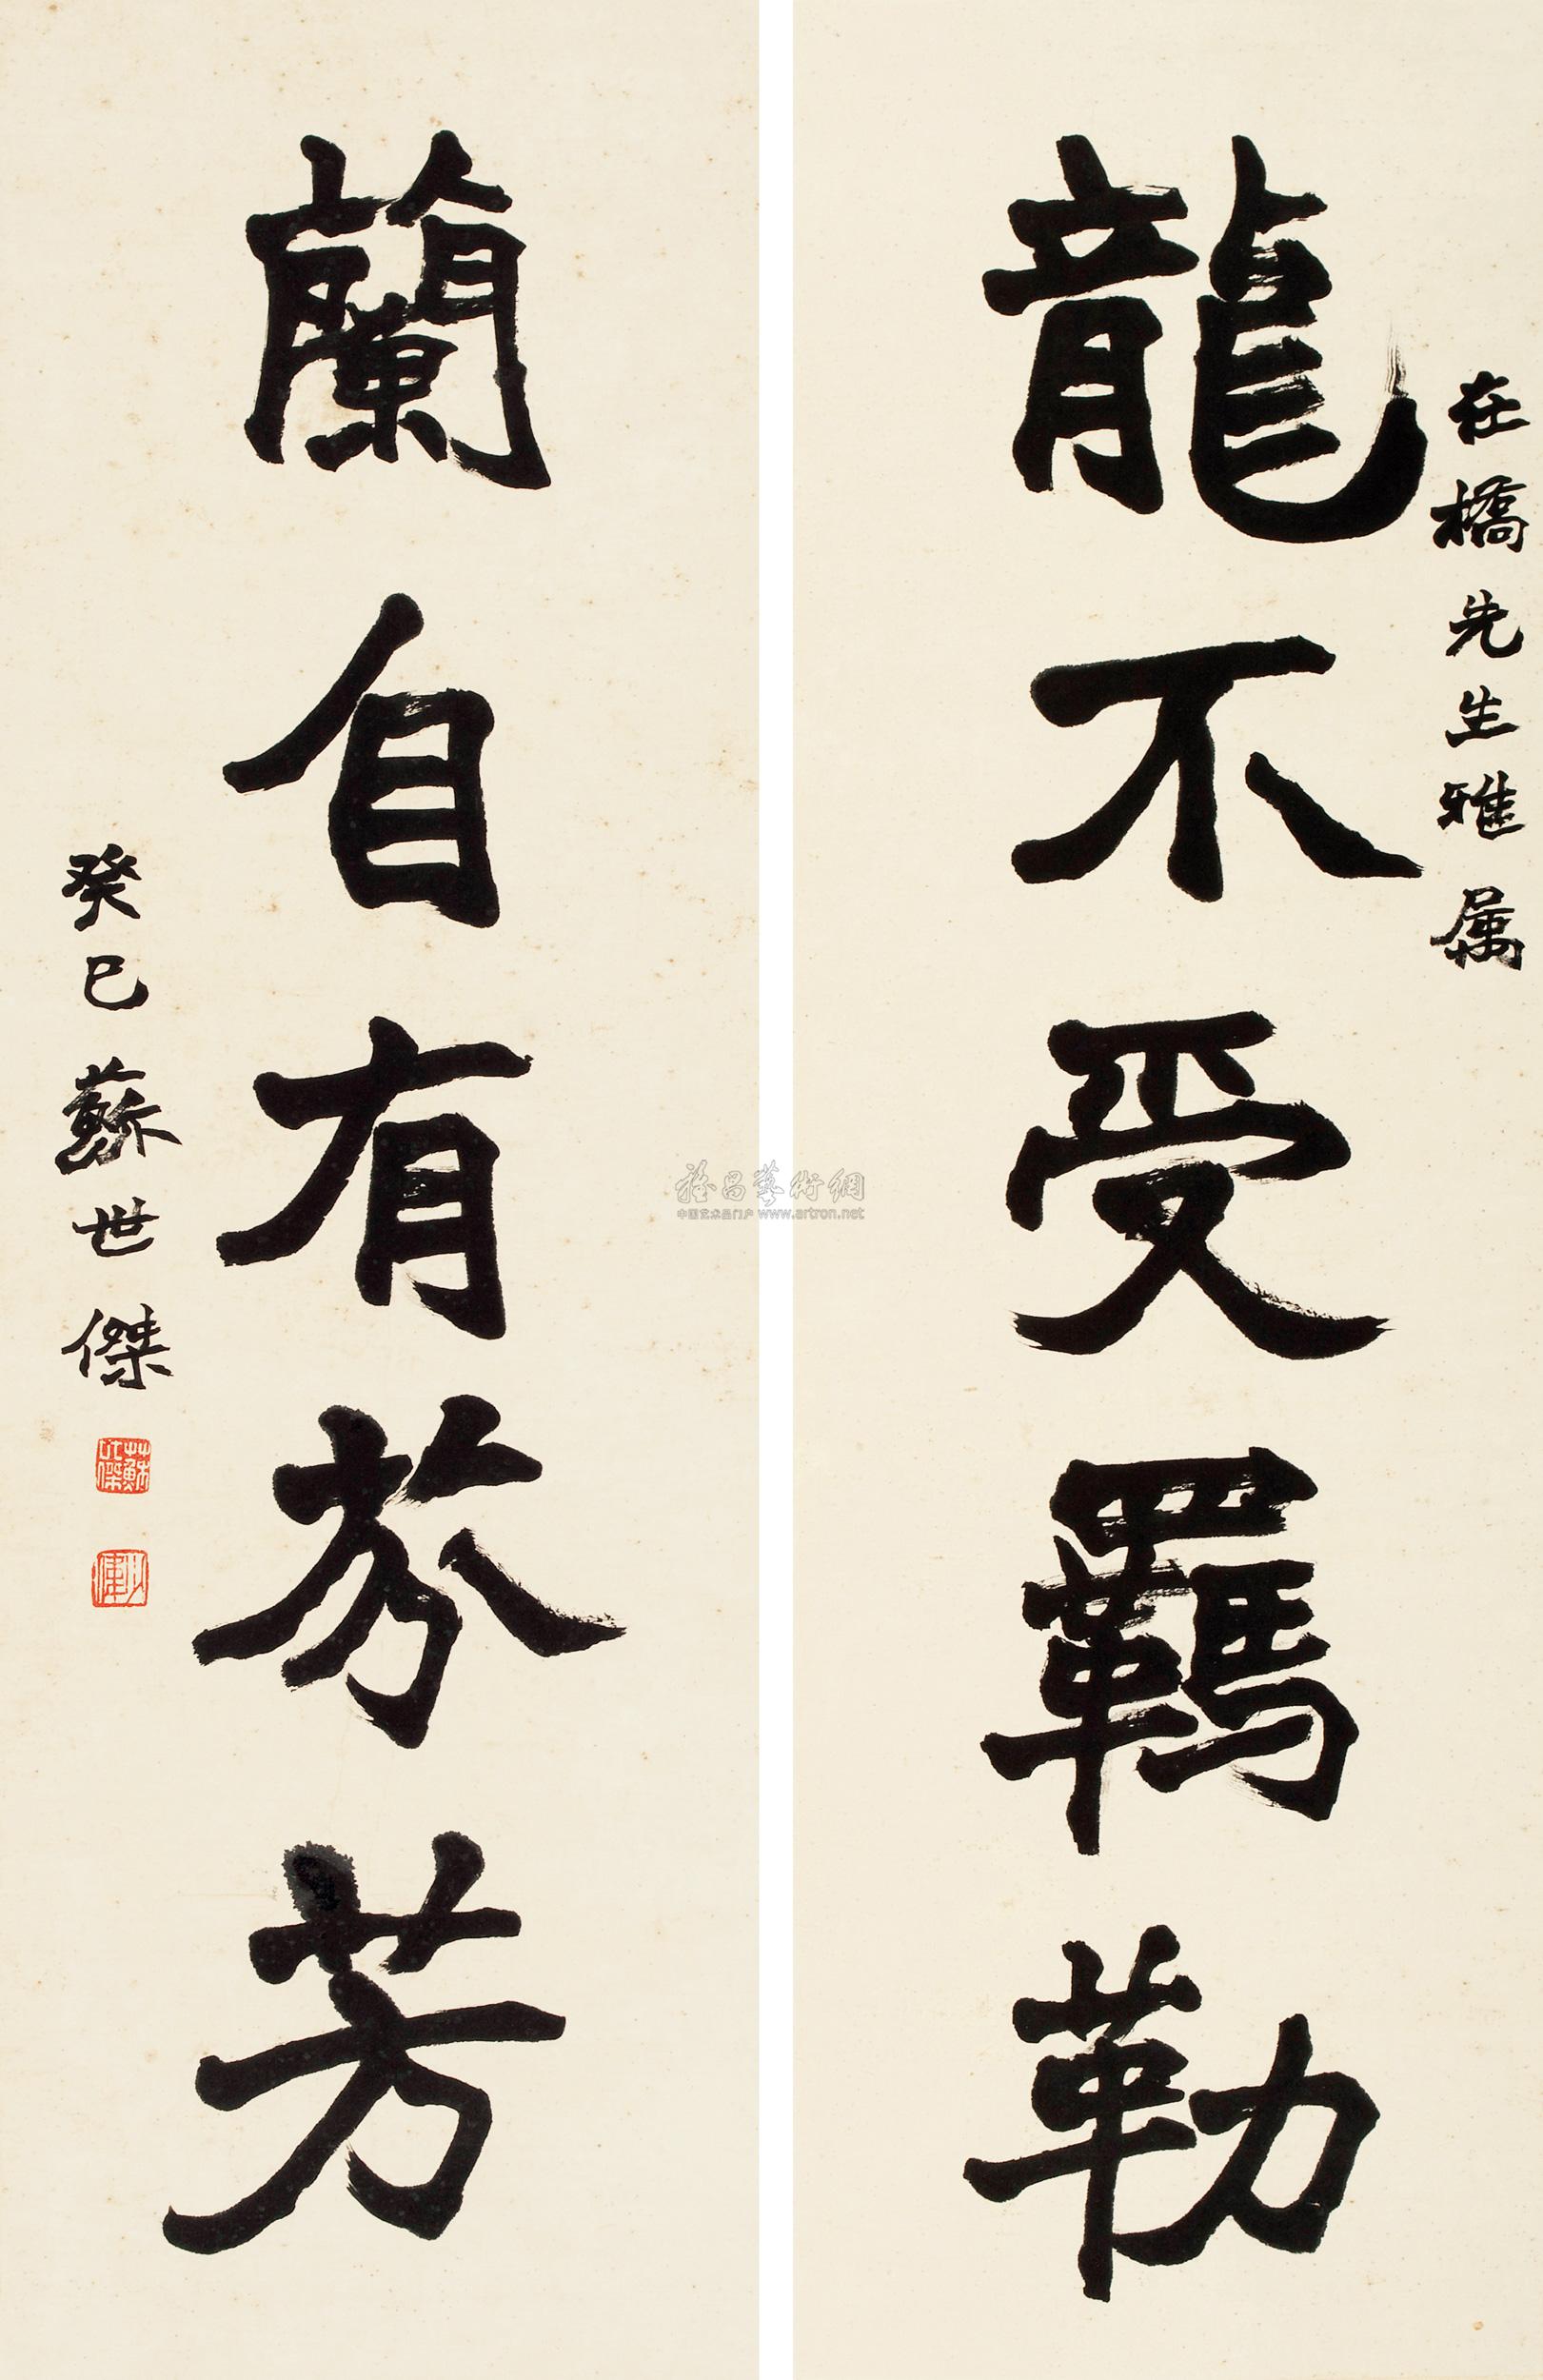 在橋先生雅属
龍不受羈勒
蘭自有芬芳
癸巳蘇世傑
雅昌藝術網
中国艺术品门户 www.artron.net